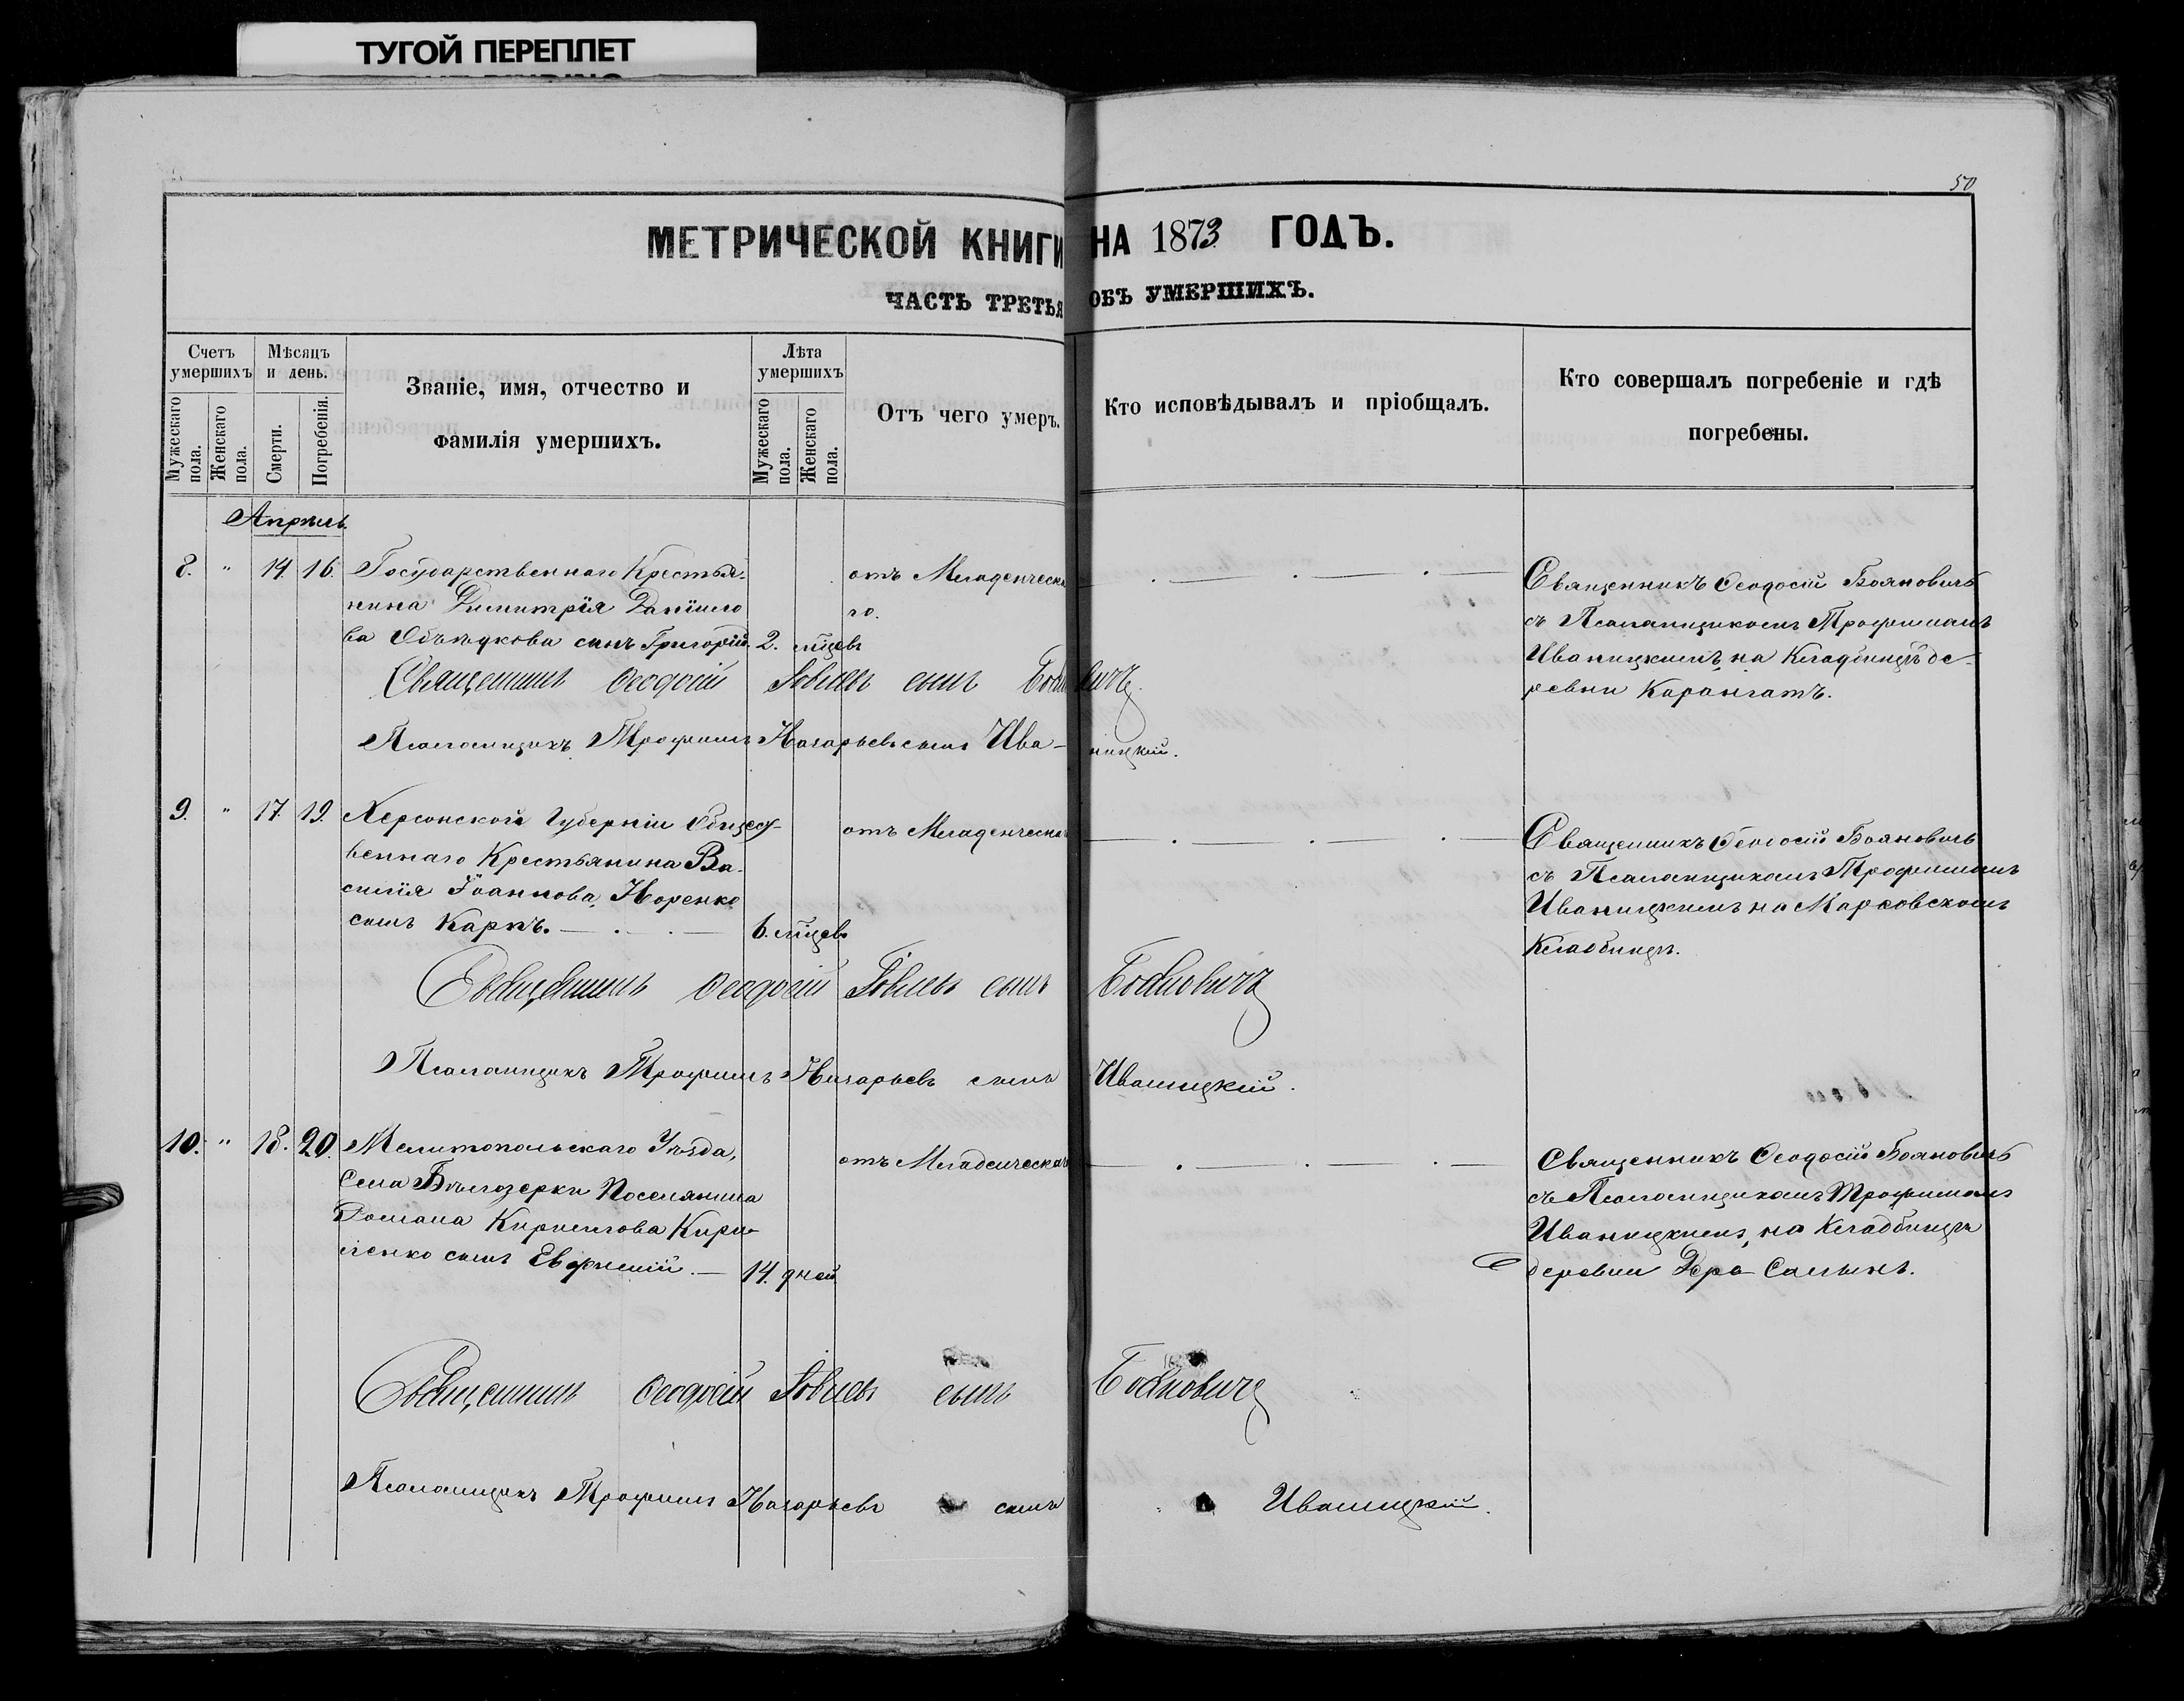 ТУГОЙ ПЕРЕПЛЕТ
50
МЕТРИЧЕСКОЙ КНИГИ НА 1873 ГОДЪ.
ЧАСТЬ ТРЕТЬЯ ОБЪ УМЕРШИХЪ.
Счетъ умершихъ
Мужескаго пола.
Женскаго пола.
Мѣсяцъ и день.
Смерти.
Погребенія.
Званіе, имя, отчество и
фамилія умершихъ.
Лѣта умершихъ
Мужескаго пола.
Женскаго пола.
Отъ чего умеръ.
Кто исповѣдывалъ и пріобщалъ.
Кто совершалъ погребеніе и гдѣ
погребены.
Апрѣль
8. " 14. 16. Государственнаго Крестья-
нина Димитрія Даніило
ва сынъ Григорій. 2. мѣц
отъ Младенческа
го.
Священникъ Ѳеодосій Бояновичъ
съ Псаломщикомъ Трофимомъ
Иваницкимъ, на Кладбищѣ де-
ревни Карангатъ.
Священникъ Ѳеодосій Іовлевъ сынъ Бояновичъ.
Псаломщикъ Трофимъ Назарьевъ сынъ Ива-ницкій.
9. " 17. 19. Херсонской Губерніи Общест-
веннаго Крестьянина Ва-
силія Іоаннова Норенко
сынъ Карпъ. 6. мѣц
отъ Младенческа
Священникъ Ѳеодосій Бояновичъ
съ Псаломщикомъ Трофимомъ
Иваницкимъ на Марѳовскомъ
Кладбищѣ.
Священникъ Ѳеодосій Іовлевъ сынъ Бояновичъ
Псаломщикъ Трофимъ Назарьевъ сынъ Иваницкій.
10. " 18. 20. Мелитопольскаго Уѣзда,
Села Бѣлозерки Поселянина
Романа Кирилова Кири-
ленко сынъ Евфимій. 14. дней
отъ Младенческа
Священникъ Ѳеодосій Бояновичъ
съ Псаломщикомъ Трофимомъ
Иваницкимъ, на Кладбищѣ
деревни Салынъ.
Священникъ Ѳеодосій Іовлевъ сынъ Бояновичъ
Псаломщикъ Трофимъ Назарьевъ сынъ Иваницкій.